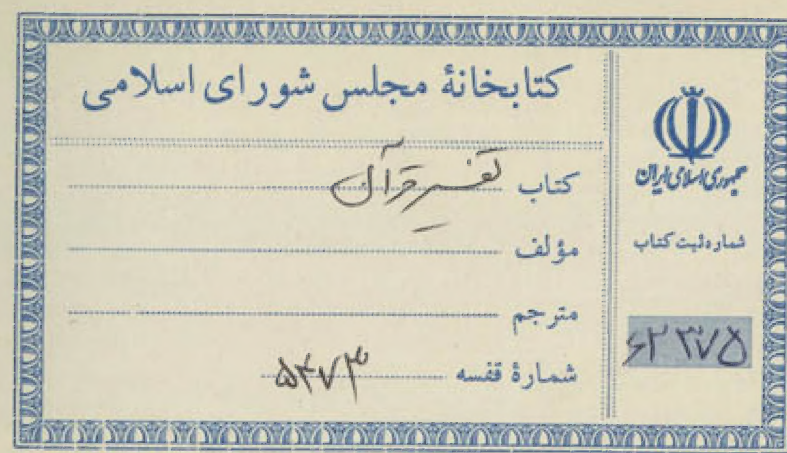 کتابخانهٔ مجلس شورای اسلامی
کتاب تفسیر قرآن
مؤلف
مترجم
شمارهٔ قفسه ۵۴۷۳
جمهوری اسلامی ایران
شماره ثبت کتاب
۶۲۳۷۵